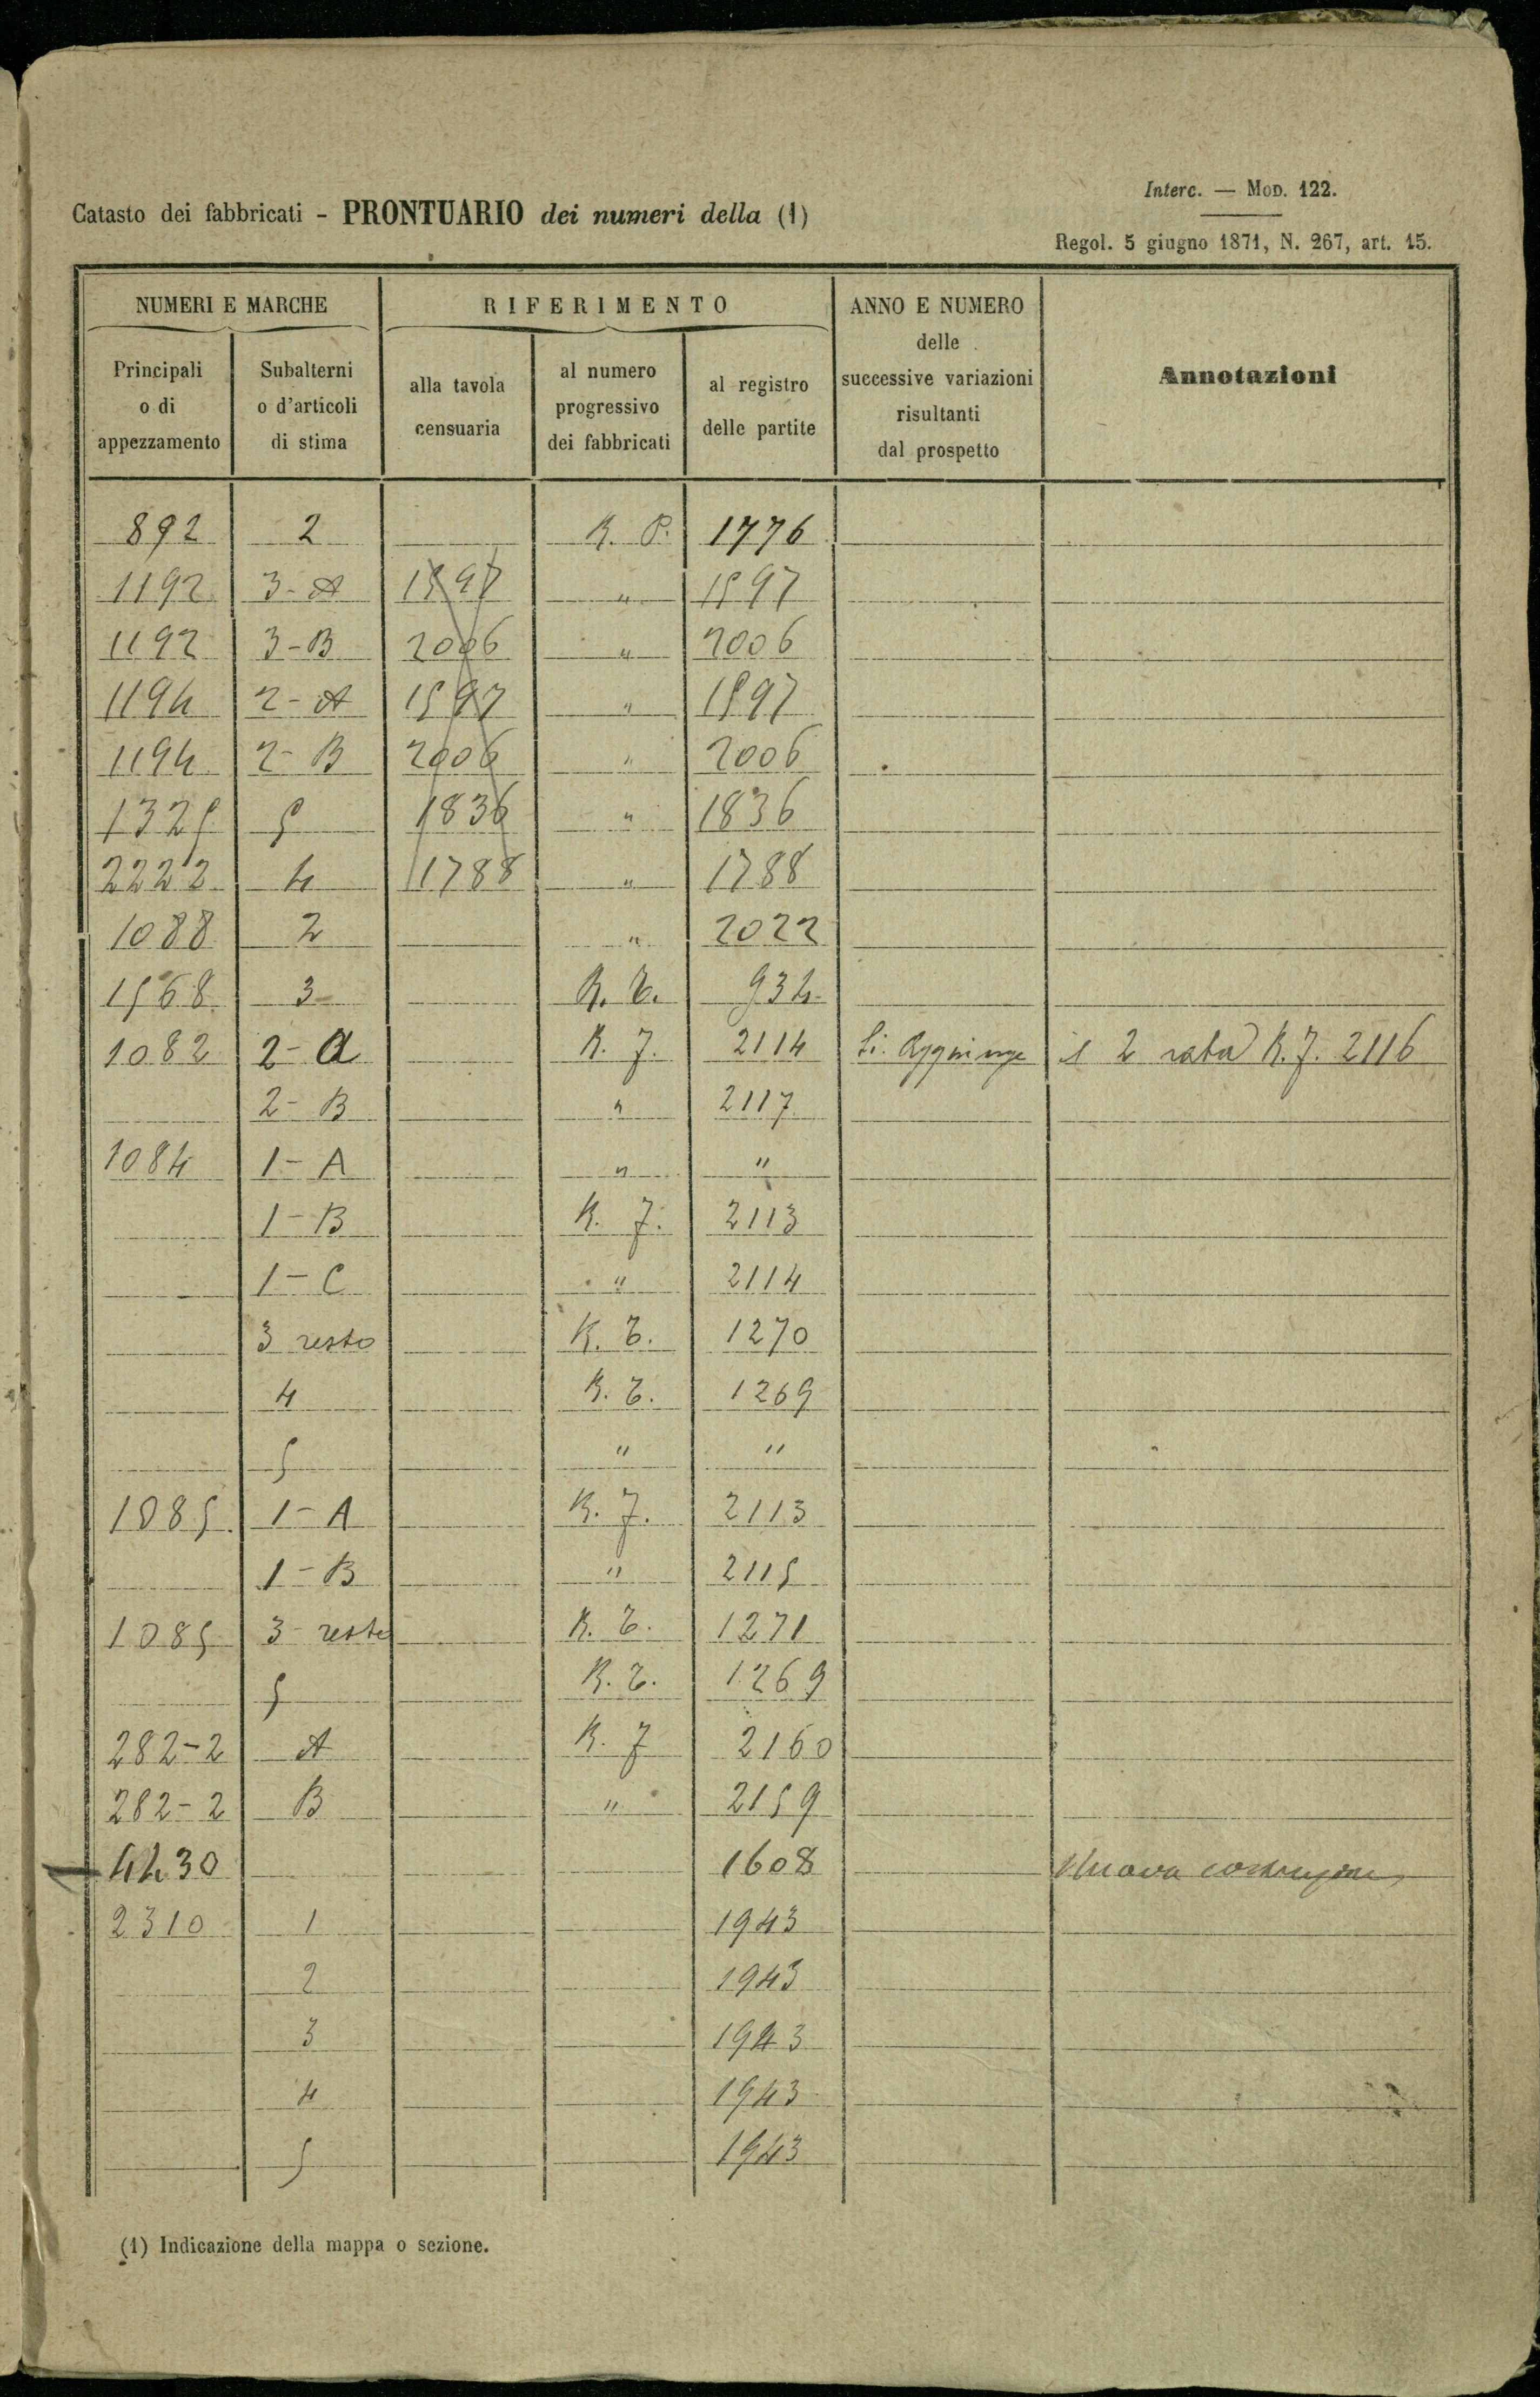 Interc. — MOD. 122.
Catasto dei fabbricati - PRONTUARIO dei numeri della (1)
Regol. 5 giugno 1871, N. 267, art. 15.
NUMERI E MARCHE RIFERIMENTO ANNO E NUMERO delle successive variazioni risultanti dal prospetto Annotazioni
Principali o di appezzamento Subalterni o d'articoli di stima alla tavola censuaria al numero progressivo dei fabbricati al registro delle partite
892 2 R. P. 1776
1192 3-A 1597 " 1597
1192 3-B 2006 " 2006
1194 2-A 1597 " 1597
1194 2-B 2006 " 2006
1325 5 1836 " 1836
2222 4 1788 " 1788
1088 2 " 2022
1568 3 R. T. 934
1082 2-a R. F. 2114 Si Aggiunge il 2 rata R. F. 2116
2-B " 2117
1084 1-A " "
1-B R. F. 2113
1-C " 2114
3 resto R. T. 1270
4 R. T. 1269
5 " "
1085 1-A R. F. 2113
1-B " 2115
1085 3 resto R. T. 1271
5 R. T. 1269
282-2 A R. F 2160
282-2 B " 2159
4430 1608 Nuova costruzione
2310 1 1943
2 1943
3 1943
4 1943
5 1943
(1) Indicazione della mappa o sezione.